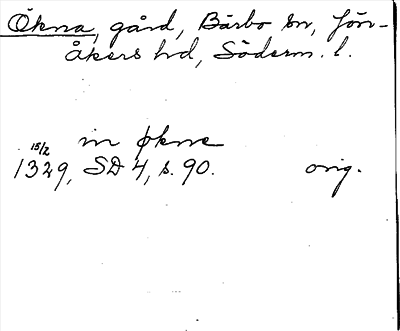 Ökna, gård, Bärbo sn, Jön-
åkers hd, Söderm. l.
in økne
15/2
1329, SD 4, s. 90. orig.